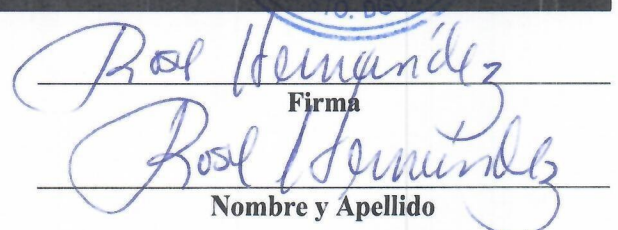 TO. DGO
Rose Hernández
Firma
Rose Hernández
Nombre y Apellido